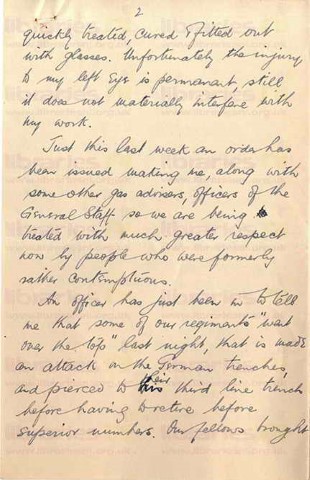 2
quickly treated, cured & fitted out
with glasses. Unfortunately the injury
to my left Eye is permanant, still
it does not materially interfere with
my work.
Just this last week an order has
been issued making me, along with
some other gas advisers, officers of the
General Staff so we are being
treated with much greater respect
now by people who were formerly
rather contemptuous.
An officer has just been in to tell
me that some of our regiments "went
over the top" last night, that is made
an attack on the German trenches,
and pierced to their third line trench
before having to retire before
superior numbers. Our fellows brought